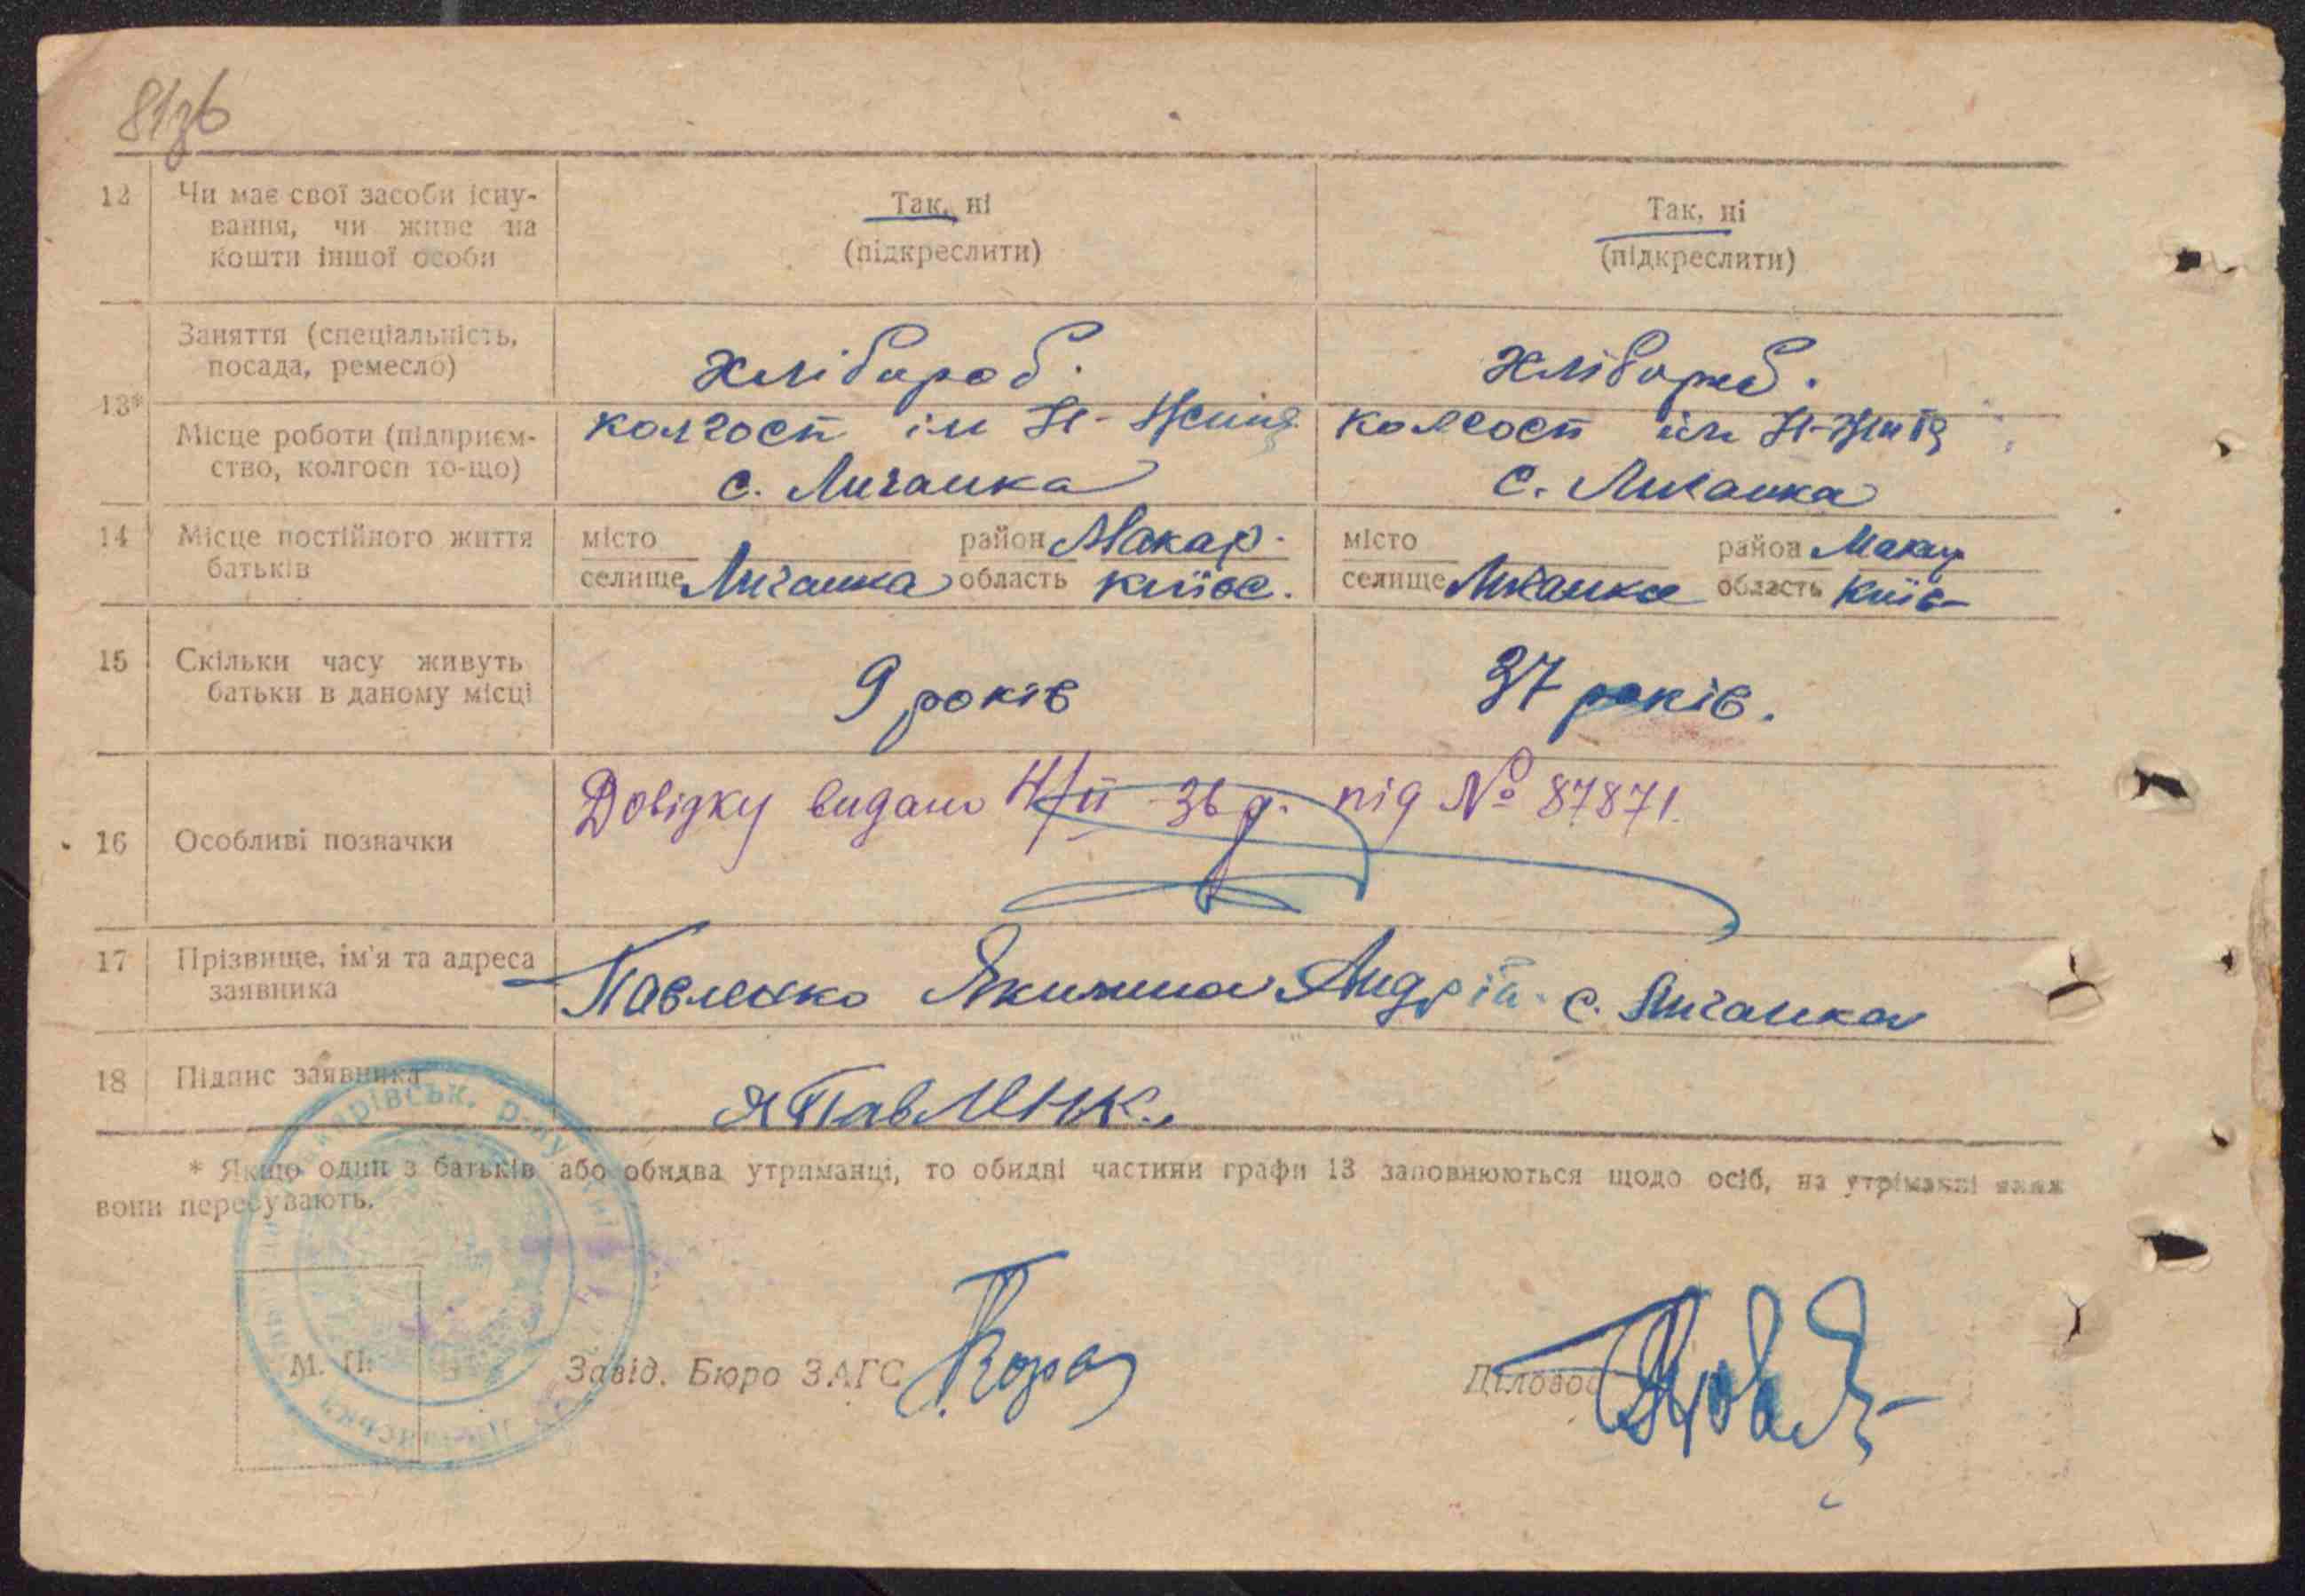 81зв
12 Чи має свої засоби існу-
вання, чи живе на
кошти іншої особи
Так, ні
(підкреслити)
Так, ні
(підкреслити)
13*
Заняття (спеціальність,
посада, ремесло)
хлібороб.
хлібороб.
Місце роботи (підприєм-
ство, колгосп то-що)
колгосп ім
с. Личанка
колгосп ім
с. Личанка
14 Місце постійного життя
батьків
місто район Макар.
селище Личанка область Київс.
місто район Макар
селище Личанка область Київ-
15 Скільки часу живуть
батьки в даному місці
9 років
37 років.
16 Особливі позначки
Довідку видано 4/ІІ 36 р. під № 87871.
17 Прізвище, ім'я та адреса
заявника
Павленко Якимина Андрій. с. Личанка
18 Підпис заявника
Я Павленк.
* Якщо один з батьків або обидва утриманці, то обидві частини графи 13 заповнюються щодо осіб, на утріманні яких
вони пересувають.
М. П.
Завід. Бюро ЗАГС
Діловод